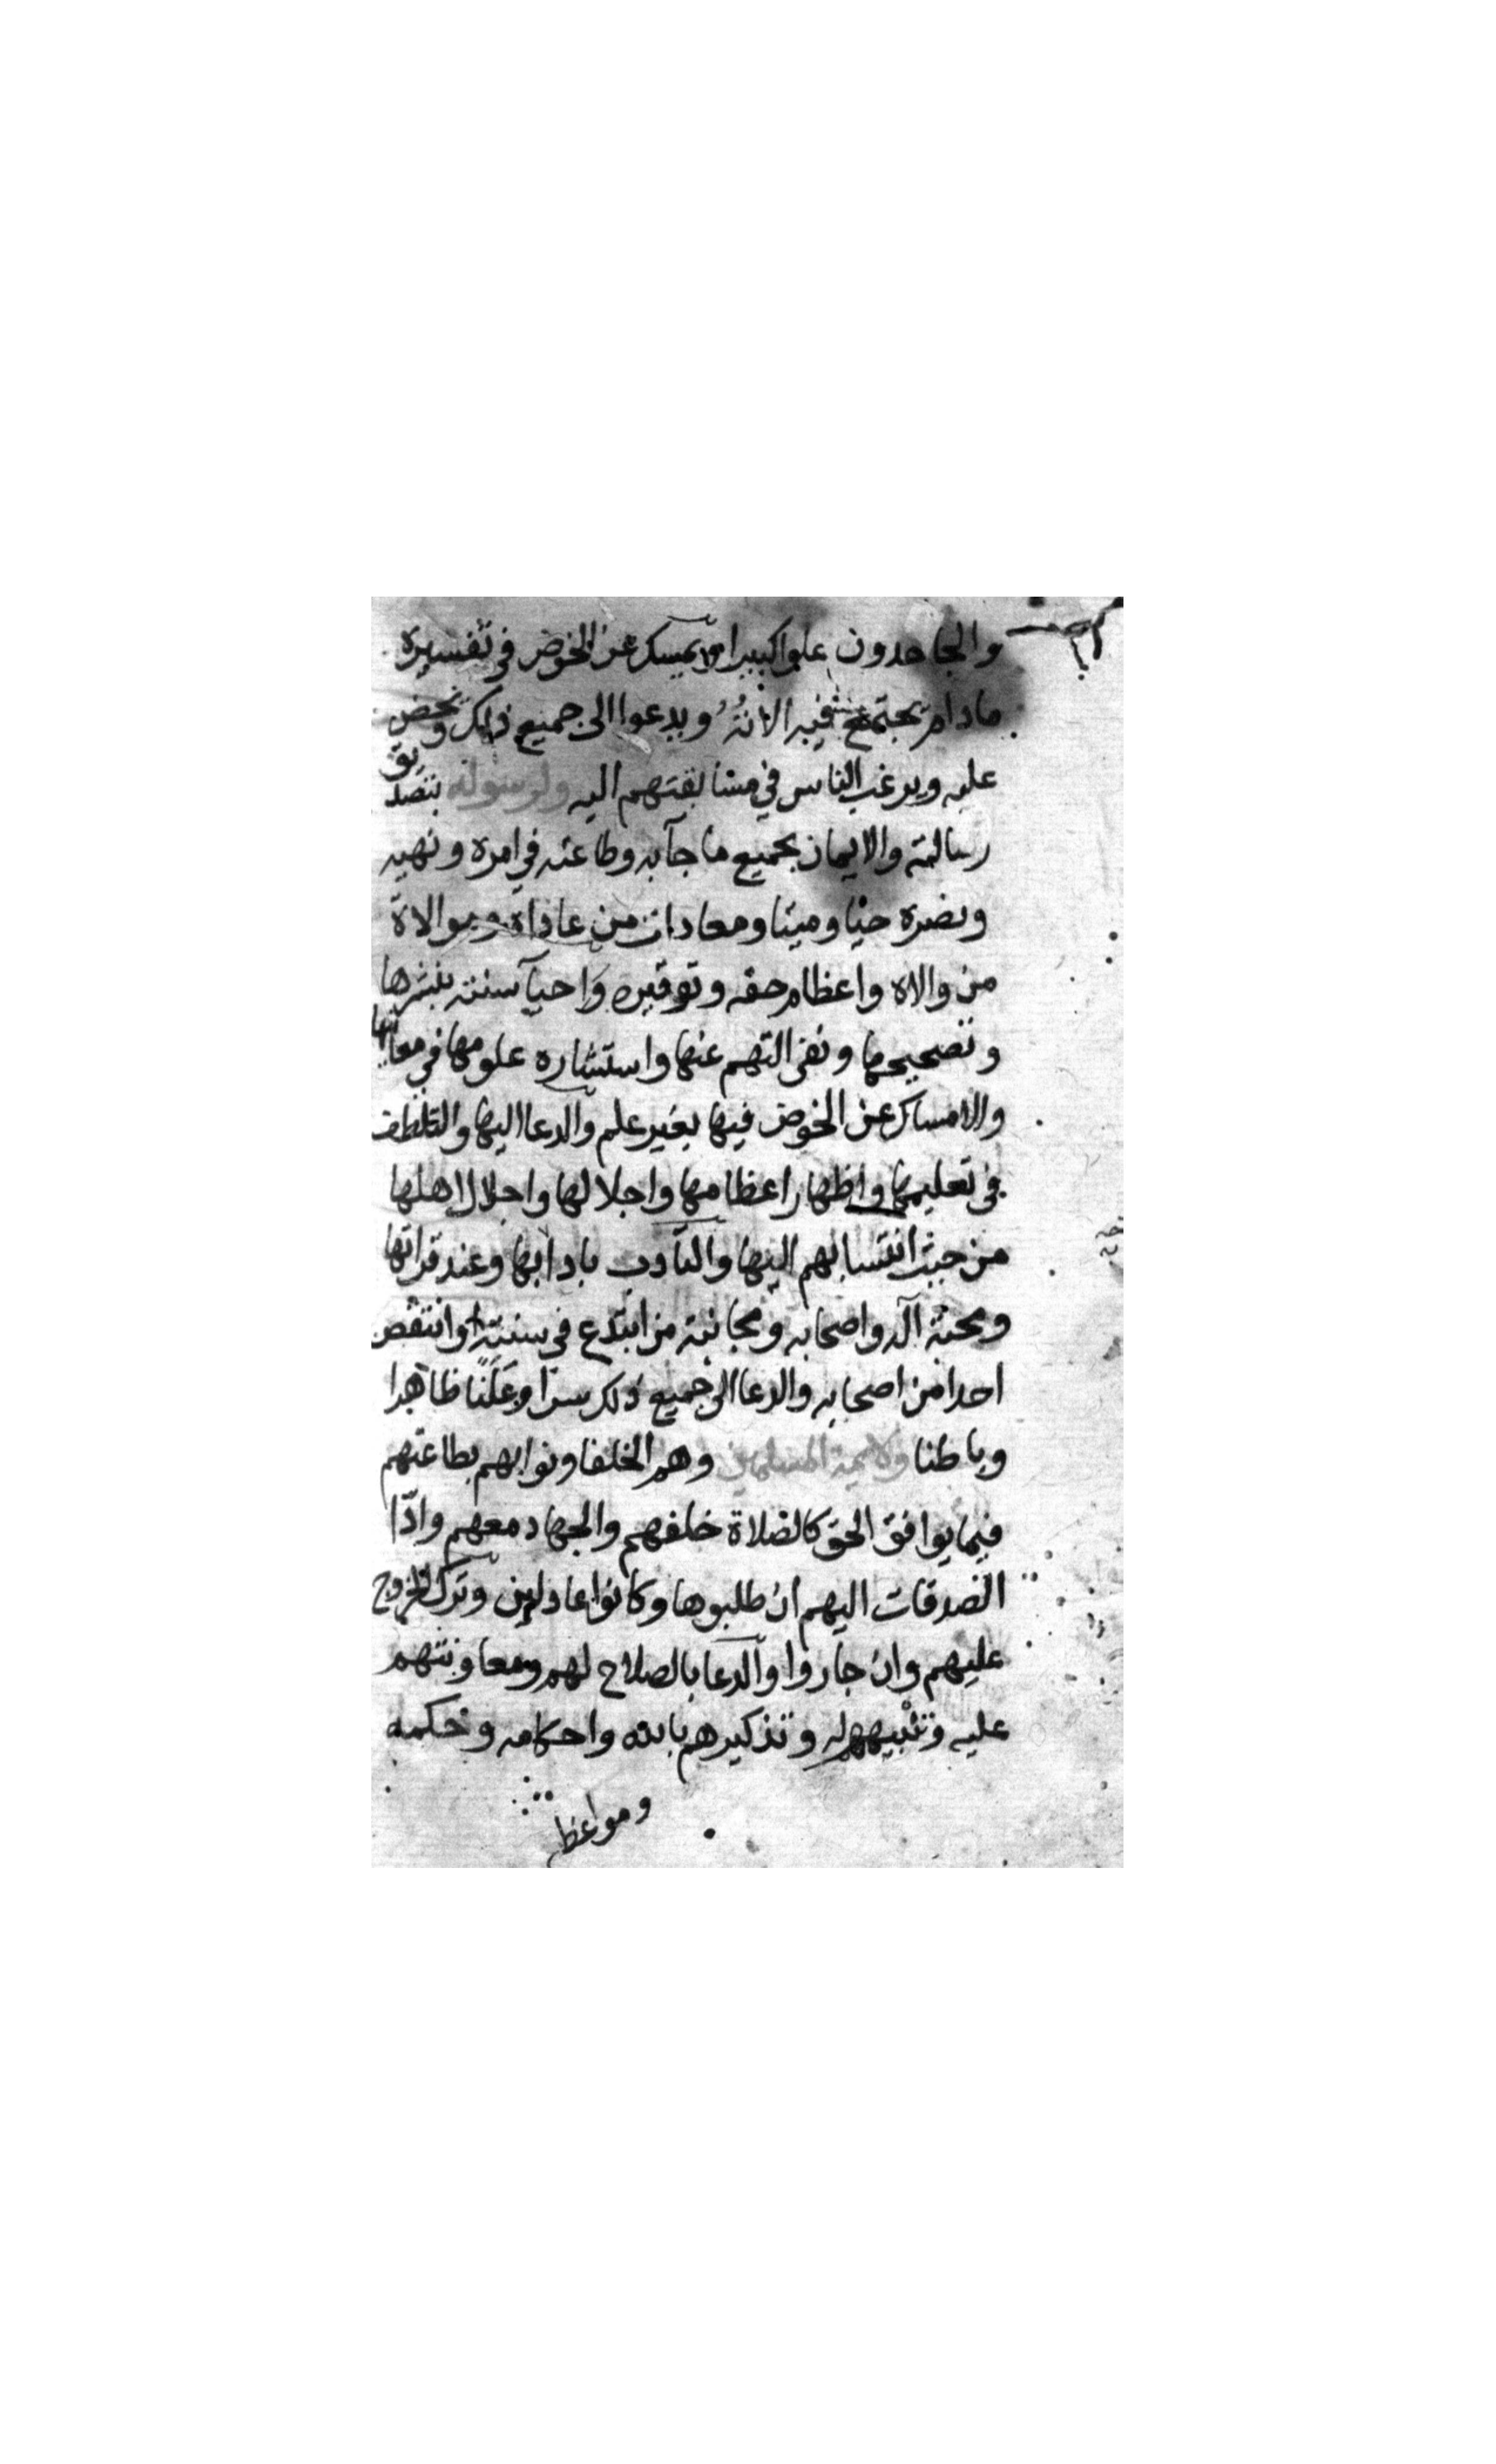 والجاحدون علوا كبيرا ويمسك عن الخوض في تفسيره
مادام تجتمع فيه الانة ويدعوا الى جميع ذلك ويحض
عليه ويرغب الناس في مسابقتهم اليه ولرسوله بتصديق
رسالته والايمان بجميع ما جآبه وطاعته في امره ونهيه
ونصره حيا وميتا ومعادات من عاداه وموالاة
من والاه واعظام حقه وتوقيره واحيآ سنته بنشرها
وتصحيحها ونفى التهم عنها واستشاره علومها في معانيها
والامساك عن الخوض فيها بغير علم والدعا اليها والتلطف
في تعليمها واظهار اعظامها واجلالها واجلال اهلها
من حيث انتسابهم اليها والتأدب بادابها وعند قراتها
ومحبة آله واصحابه ومجانبة من ابتدع في سنته او انتقص
احدا من اصحابه والدعا الى جميع ذلك سرا وعلنا ظاهرا
وباطنا ولايمة المسلمين وهم الخلفا ونوابهم بطاعتهم
فيما يوافق الحق كالصلاة خلفهم والجهاد معهم وادّا
الصدقات اليهم ان طلبوها وكانوا عادلين وترك الخروج
عليهم وان جاروا والدعا بالصلاح لهم ومعاونتهم
عليه وتنبيههم له وتذكيرهم بالله واحكامه وحكمه
ومواعظ